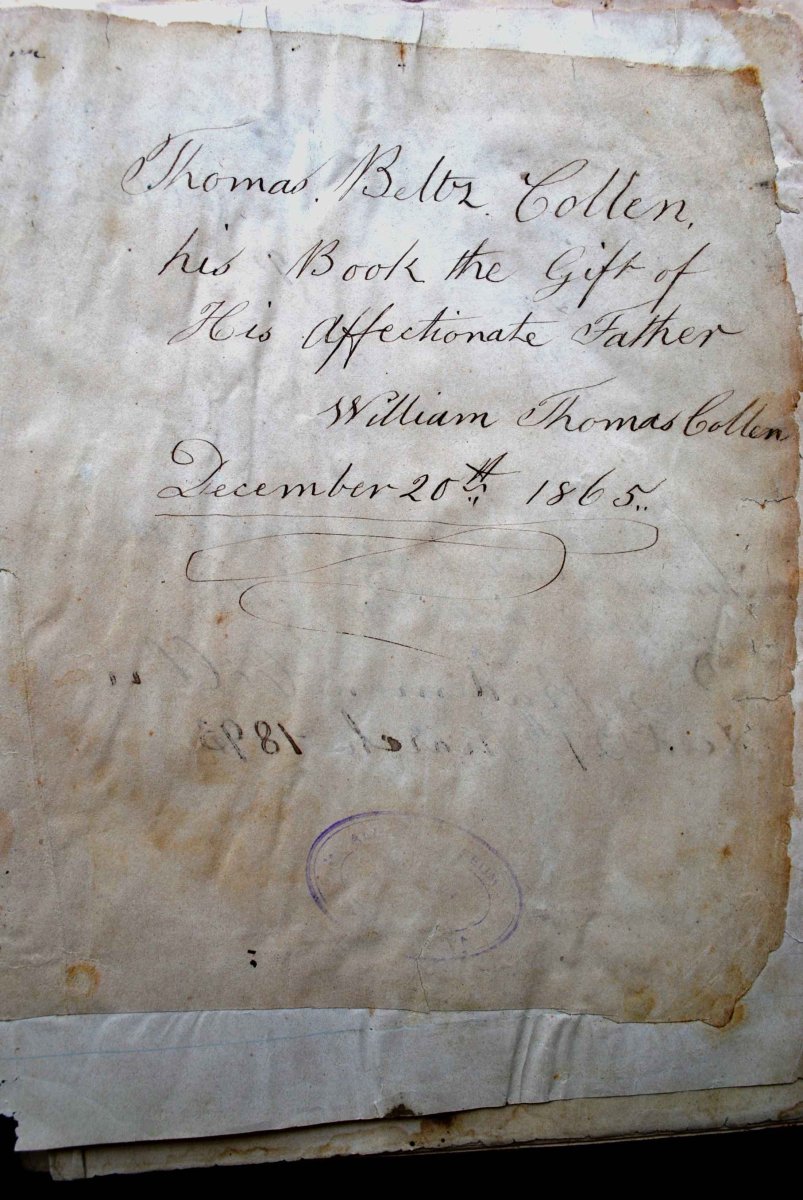 Thomas. Beltz. Collen,
his Book the Gift of
His Affectionate Father
William Thomas Collen
December 20th 1865..
March 1893